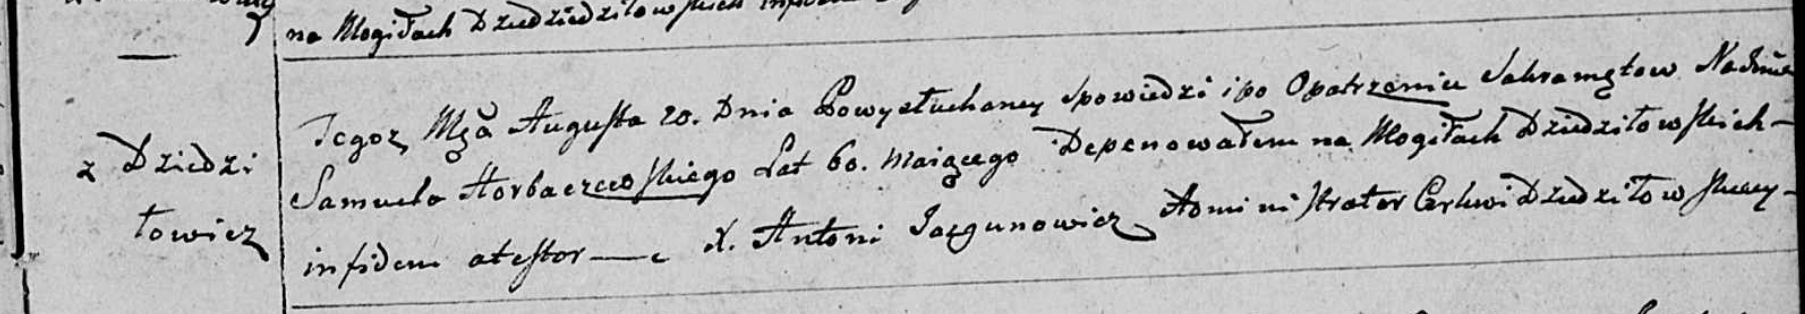 na Mogiłach Dziedziłowskich
z Dziedzi
łowicz
Tegoż Mca Augusta 20. Dnia Powysłuchaney Spowiedzi i po Opatrzeniu Sakramętow
Samuela Horbaczewskiego Lat 60. Maiącego Deponowałem na Mogiłach Dziedziłowskich –
in fidem atestor — X. Antoni Jazgunowicz Administrator Cerkwi Dziedziłowskiey –